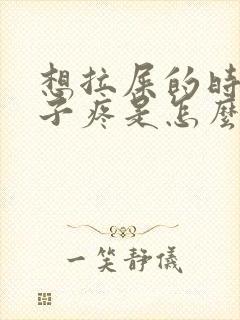 想拉屎的时
子疼是怎麽
一笑静儀